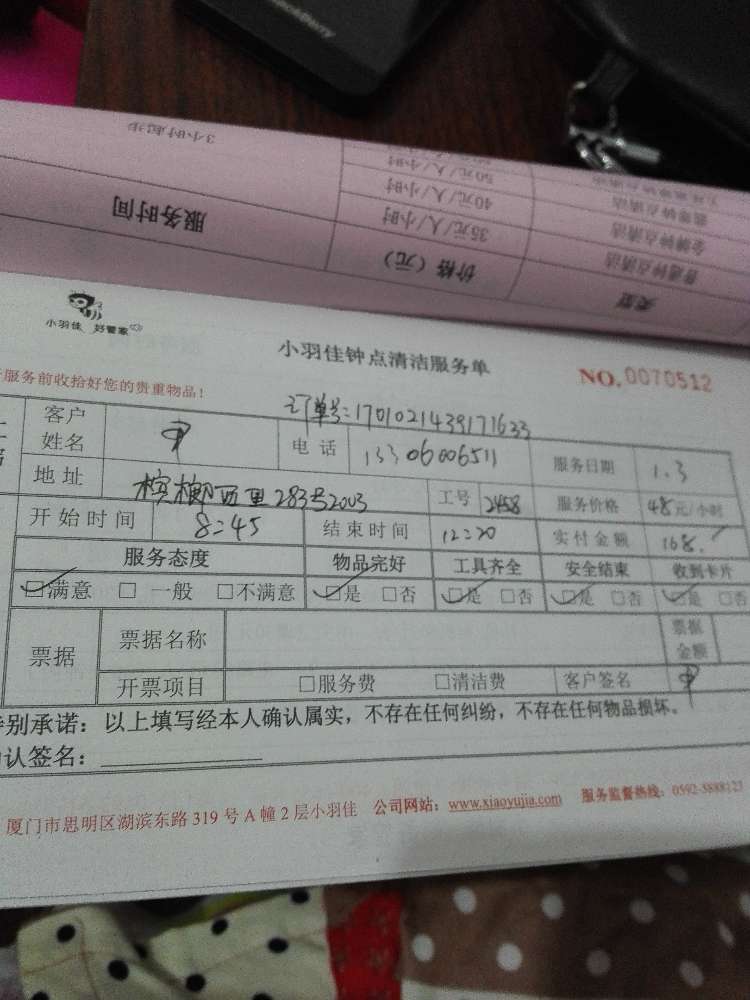 BlackBerry
3小时起步
50元/人/小时
40元/人/小时
金牌钟点清洁
服务时间
35元/人/小时
普通钟点清洁
价格（元）
类型
小羽佳 好管家
小羽佳钟点清洁服务单
NO.0070512
服务前收拾好您的贵重物品！
订单号：1701021439171633
客户姓名
电话 13306006511
服务日期 1.3
地址 槟榔西里283号2003
工号 2458
服务价格 48元/小时
开始时间 8:45
结束时间 12:20
实付金额 168.
服务态度 物品完好 工具齐全 安全结束 收到卡片
□满意 □一般 □不满意 □是 □否 □是 □否 □是 □否 □是 □否
票据 票据名称 票据金额
开票项目 □服务费 □清洁费 客户签名
特别承诺：以上填写经本人确认属实，不存在任何纠纷，不存在任何物品损坏。
确认签名：
厦门市思明区湖滨东路319号A幢2层小羽佳 公司网站：www.xiaoyujia.com 服务监督热线：0592-5888123